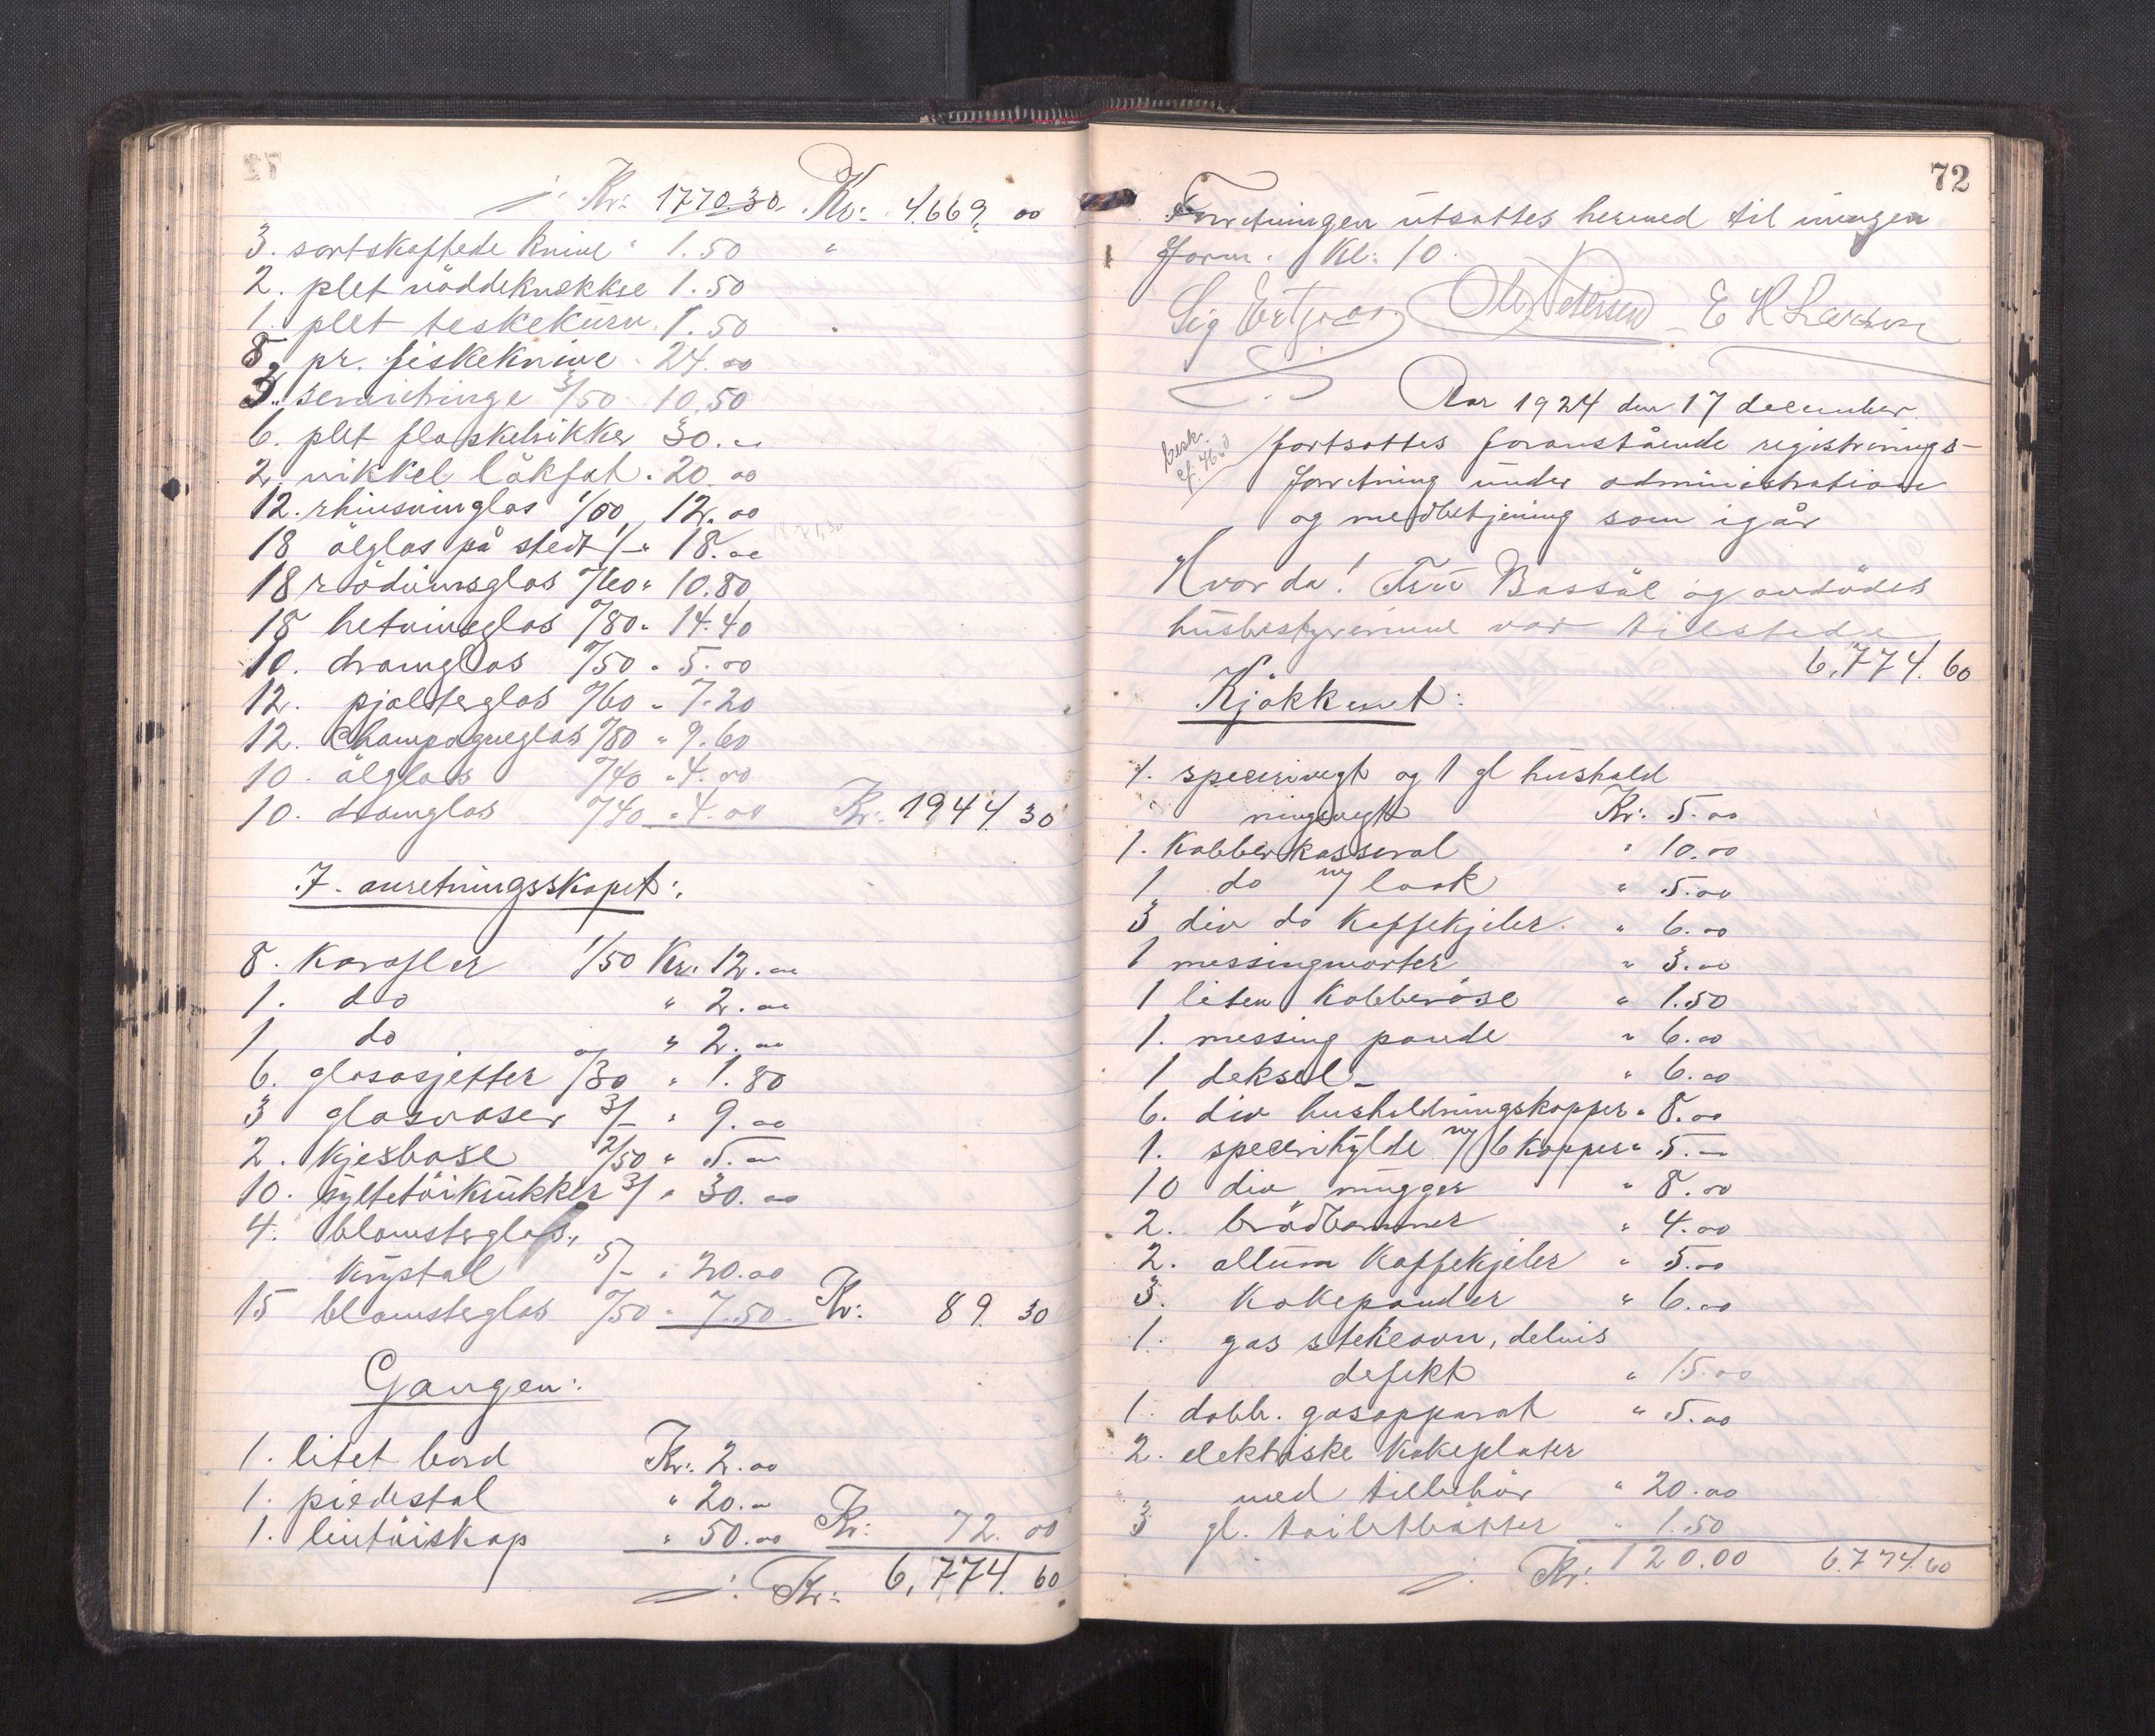 Kr: 1770.30. Kr: 4.669. 00
3. sortskaftede knive " 1.50 "
2. plet nöddeknække 1.50
1. plet teskekurv. 1.50
8, pr. fiskeknive . 24.00
3. serviettringe 3/50 10.50
6. plet flaskebrikker 30.00
2. nikkel lökfat . 20.00
12. rhinsvinglas 1/00, 12.00
18 ölglas på stedt 1/- " 18.00
18 rödvinsglas 0/60 " 10.80
18 hetvinsglas 0/80 " 14.40
10. dramglas 0/50 " 5.00
12. pjolterglas 0/60 " 7.20
12. Champagneglas 0/80 " 9.60
10. ölglas 0/40 " 4.00
10. dramglas 0/40 " 4.00 Kr: 1944.30
I anretningsskapet:
8. Karafler 1/50 Kr. 12.00
1. do " 2.00
1 do " 2.00
6. glasasjetter 0/30 " 1.80
3 glasvaser 3/- " 9.00
2. Kjesbase 2/50 " 5.00
10. syltetöikrukker 3/ " 30.00
4. blomsterglas,
Krystal 5/- " 20.00
15 blomsterglas 0/50 " 7.50. Kr: 89.30
Gangen:
1. litet bord Kr: 2.00
1. piedestal " 20.00
1. lintöiskap " 50.00 Kr: 72.00
Kr: 6,774.60
72
Forretningen utsattes hermed til imorgen
form. Kl: 10.
Petersen E K Larsen
Aar 1924 den 17 december
fortsattes foranstående registrerings-
forretning under administration
og medbetjening som igår
Hvorda! Fru Bassöe og avdødes
husbestyrerinne var tilstede
6,774.60
Kjökkenet:
1. specerivegt og 1 gl hushold
ningsvegt Kr: 5.00
1. Kobberkasserol " 10.00
1 do m/ look " 5.00
3 div do Kaffekjeler. " 6.00
1 messingmorter " 3.00
1 liten Kobberöse " 1.50
1. messing pande " 6.00
1 deksel - " 6.00
6. div husholdningskopper " 8.00
1. specerihylde m/ 6 kopper " 5.-
10 div mugger " 8.00
2. brödbommer " 4.00
2. allum Kaffekjeler " 5.00
3. Kakepander " 6.00
1. gas stekeovn, delvis
defekt " 15.00
1. dobb. gasapparat " 5.00
2. elektriske Kokeplater
med tilbehör " 20.00
3 gl. toiletbötter " 1.50
Kr: 120.00 6774.60